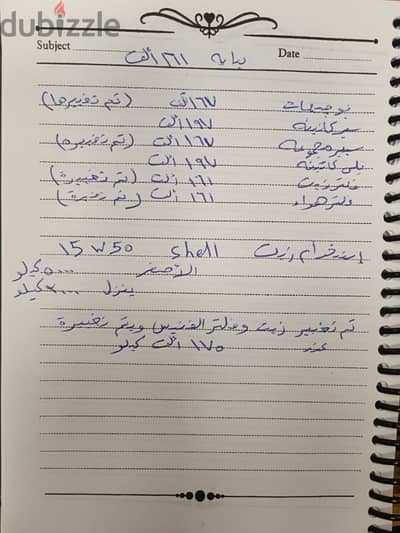 dubizzle
Subject
Date
بدايه ٢٦١ الف
بوجيهات ١٦٧ الف (تم تغييرها)
سير كاتينه ١٩٧ الف
سير مجموعه ١٦٧ الف (تم تغييره)
بلى كاتينه ١٩٧ الف
فلتر زيت ١٦١ الف (تم تغييرة)
فلتر هواء ١٦١ الف (تم تغيرة)
إستخدام زيت shell 15 W 50
الأصفر ٥٠٠٠ كيلو
ينزل كيلو
تم تغيير زيت وفلتر الفتيس ويتم تغييرة
عند ١٧٥ الف كيلو